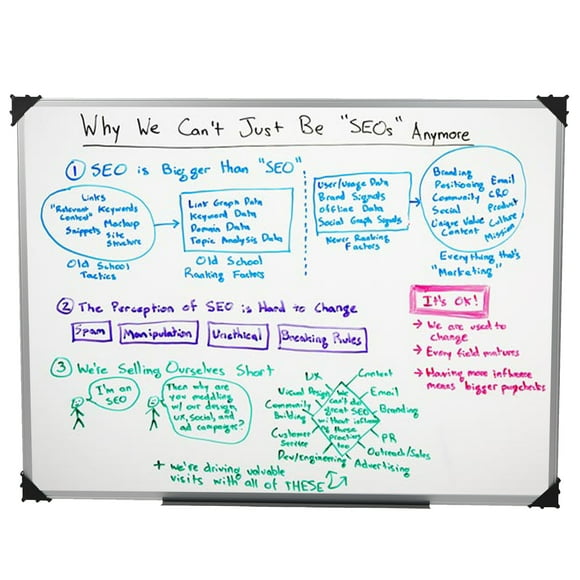 Why We Can't Just Be "SEOs" Anymore
1 SEO is Bigger than "SEO"
Links
"Relevant Keywords
Content" Markup
Snippets Site
Structure
Old School
Tactics
Link Graph Data
Keyword Data
Domain Data
Topic Analysis Data
Old School
Ranking Factors
User/Usage Data
Brand Signals
Offline Data
Social Graph Signals
Newer Ranking
Factors
Branding
Positioning Email
Community CRO
Social Product
Unique Value Culture
Content Mission
Everything that's
"Marketing"
2 The Perception of SEO is Hard to Change
Spam Manipulation Unethical Breaking Rules
It's OK!
→ We are used to
change
→ Every field matures
→ Having more influence
means bigger paychecks
3 We're Selling Ourselves Short
I'm an
SEO
Then why are
you meddling
w/ our design,
UX, social, and
ad campaigns?
UX
Content
Visual Design
Email
Community
Building
Branding
Customer
Service
PR
Dev/Engineering
Outreach/Sales
Advertising
We
can't do
great SEO
without influencing
these
practices
too
+ we're driving valuable
visits with all of THESE